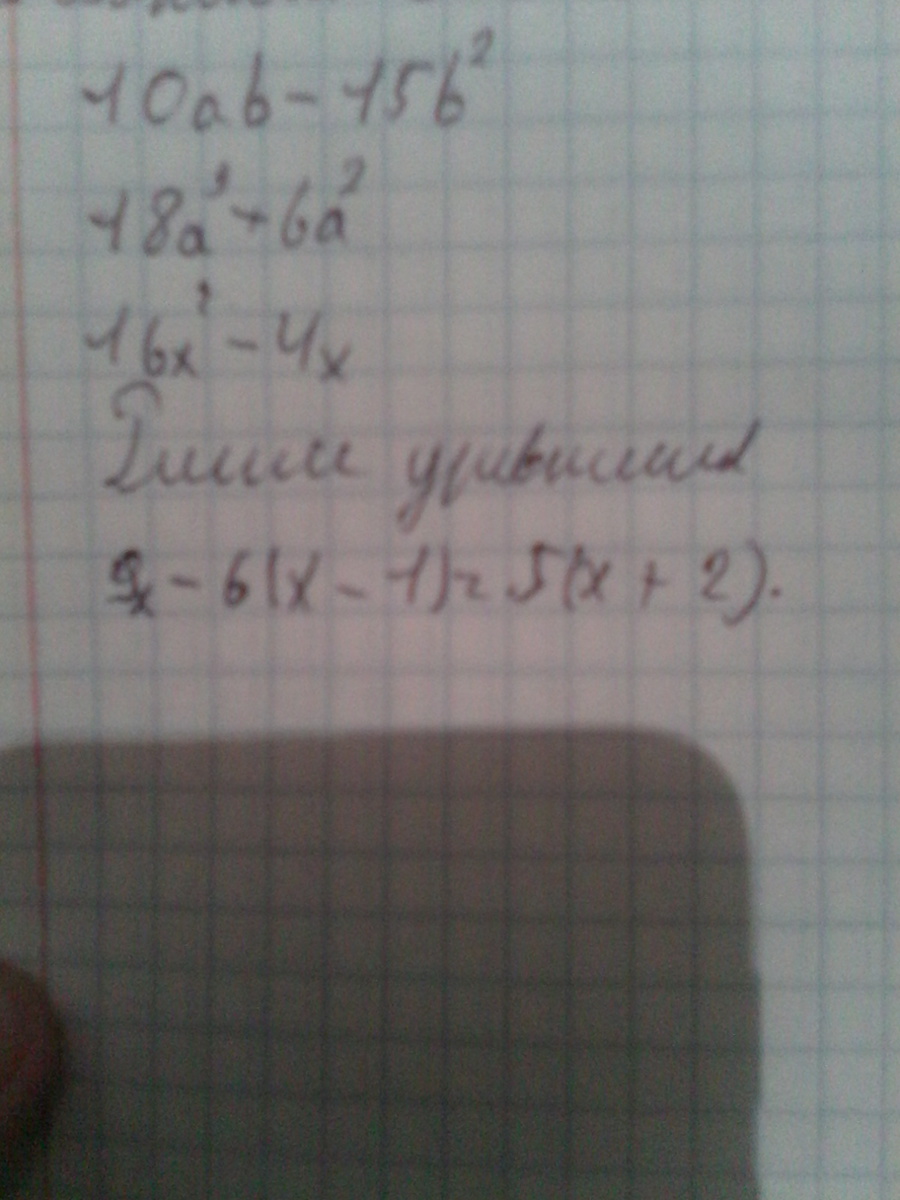 10ab - 15b²
18a³ + 6a²
16x² - 4x
Реши уравнения
9x - 6(x - 1) = 5(x + 2).